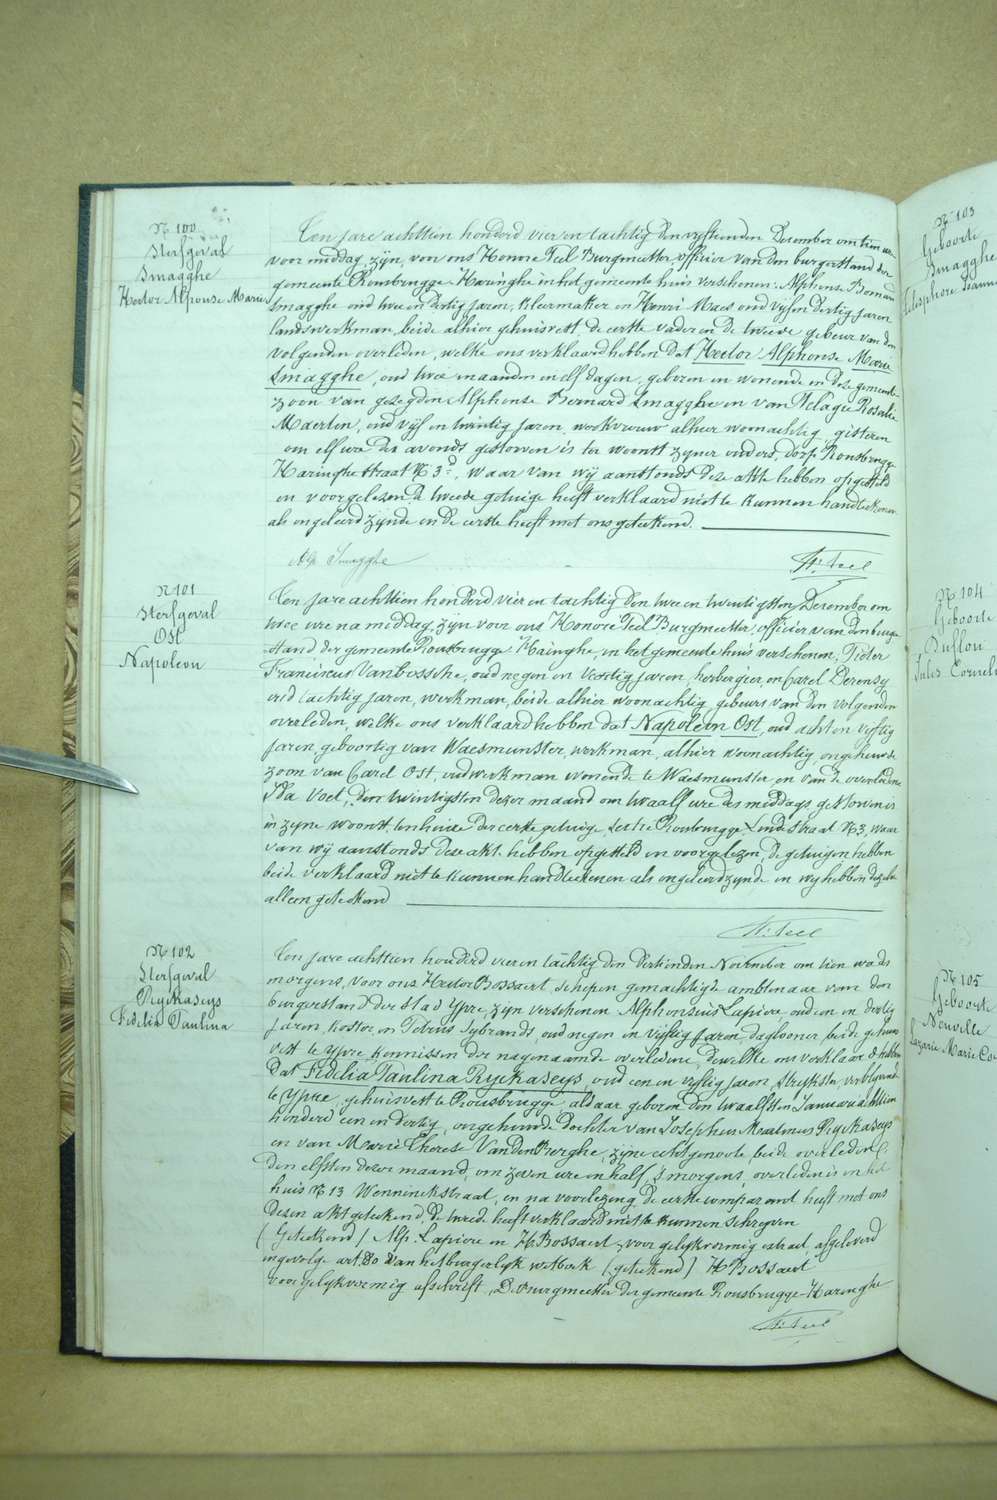 N 100
Sterfgeval
Smagghe
Hector Alphonse Marie
Ten jare achttien honderd vier en tachtig den vyftienden December om tien ure
voor middag zyn, voor ons Honoré Teel Burgmeester officier van den burgerstand der
gemeente Rousbrugge Haringhe in het gemeente huis verschenen: Alphonse Bernard
Smagghe oud twee en dertig jaren, kleermaker en Henri Maes oud vyf en dertig jaren
landswerkman, beide alhier gehuisvest, de eerste vader en de tweede gebeur van den
volgenden overleden, welke ons verklaard hebben dat Hector Alphonse Marie
Smagghe, oud twee maanden en elf dagen, geboren en wonende in deze gemeente
zoon van gezegden Alphonse Bernard Smagghe en van Pelagie Rosalie
Maerten, oud vyf en twintig jaren, werkvrouw alhier woonachtig, gisteren
om elf ure des avonds gestorven is ter woonst zyner ouders, dorp Rousbrugge
Haringhe straat N 3d. Waar van wy aanstonds deze akte hebben opgesteld
en voorgelezen de tweede getuige heeft verklaard niet te kunnen handteekenen
als ongeleerd zynde en de eerste heeft met ons geteekend.
Alp Smagghe
H. Teel
N 101
Sterfgeval
Ost
Napoleon
Ten jare achttien honderd vier en tachtig den twee en twintigsten December om
twee ure na middag, zyn voor ons Honoré Teel Burgmeester, officier van den burger
stand der gemeente Rousbrugge Haringhe, in het gemeente huis verschenen: Pieter
Franciscus Vanbesische, oud negen en veertig jaren, herbergier, en Carel Derensy
oud tachtig jaren, werkman, beide alhier woonachtig, gebeurs van den volgenden
overleden, welke ons verklaard hebben dat Napoleon Ost, oud acht en vyftig
jaren, geboortig van Waesmunster, werkman, alhier woonachtig, ongehuwde
zoon van Carel Ost, oud werkman wonende te Waesmunster, en van de overledene
Ida Voet, den twintigsten dezer maand om twaalf ure des middags gestorven is
in zyne woonst, ten huize der eerste getuige, sectie Rousbrugge, Linde straat N 3, waar
van wy aanstonds deze akt hebben opgesteld en voorgelezen, de getuigen hebben
beide verklaard niet te kunnen handteekenen als ongeleerd zynde en wy hebben dezelve
alleen geteekend
H. Teel
N 102
Sterfgeval
Ryckaseys
Fidelia Paulina
Ten jare achttien honderd vier en tachtig den dertienden November om tien ure des
morgens, voor ons Hector Bossaert, schepen gemachtigde ambtenaar van den
burgerstand der stad Ypre, zyn verschenen Alphonsius Lapiere oud een en dertig
jaren, koster, en Petrus Sybrands, oud negen en vyftig jaren, daglooner, beide gehuis
vest te Ypre kennissen der nagenaamde overledene, dewelke ons verklaard hebben
dat Fidelia Paulina Ryckaseys, oud een en vyftig jaren, strykster, verblyvende
te Ypre, gehuisvest te Rousbrugge, aldaar geboren den twaalfsten Januari achttien
honderd een en dertig, ongehuwde dochter van Josephus Martinus Ryckaseys
en van Marie Therese Van den Berghe, zyne echtgenoote, beide overleden;
den elfsten dezer maand, om zeven ure en half, 's morgens, overleden is in het
huis N 13 Wenninckstraat, en na voorlezing, de eerste comparant heeft met ons
dezen akt geteekend, de tweede heeft verklaard niet te kunnen schryven
(Geteekend) Alp. Lapiere en H Bossaert, voor gelykvormig extract, afgeleverd
ingevolge art. 80 van het burgerlyk wetboek (geteekend) H Bossaert
voor gelykvormig afschrift, De Burgmeester der gemeente Rousbrugge-Haringhe
H. Teel
N 103
Geboorte
Smagghe
Telesphore Jeanne
N 104
Geboorte
Duflou
Jules Corneli
N 105
Geboorte
Neuville
Marie Co